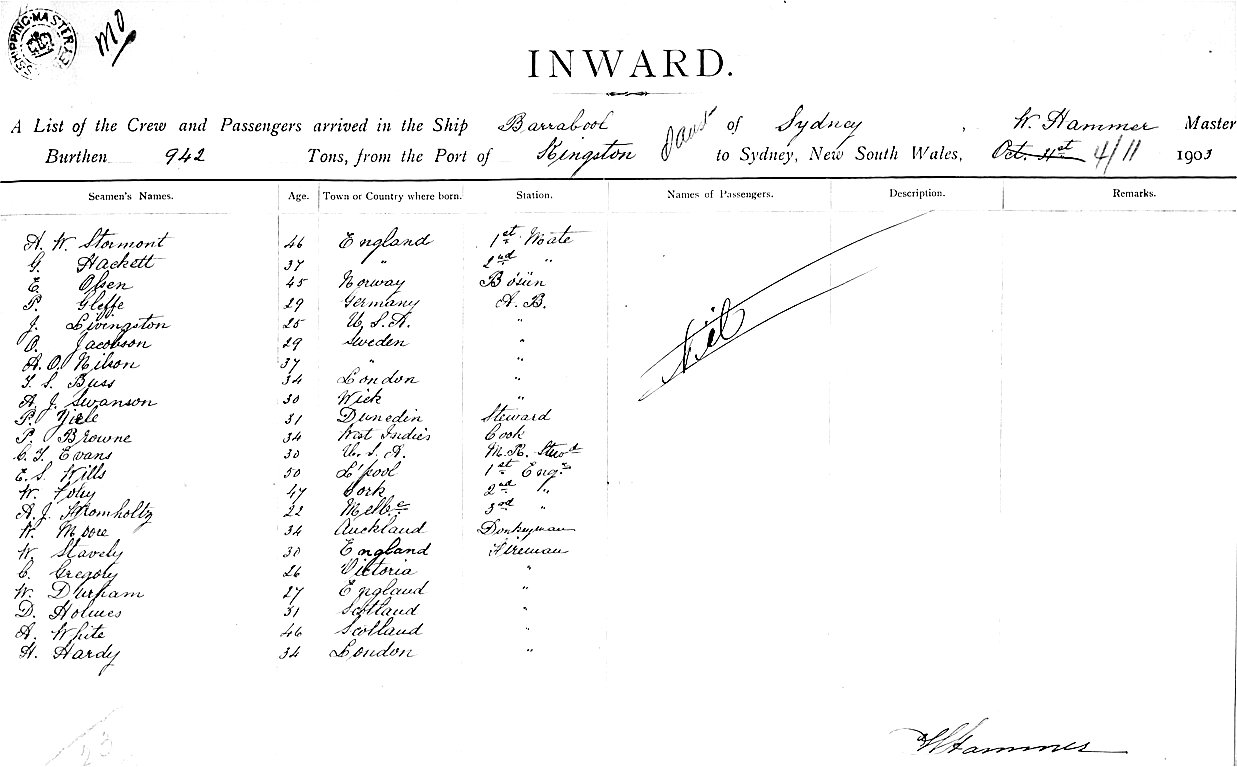 SHIPPING MASTER
INWARD.
A List of the Crew and Passengers arrived in the Ship Barrabool of Sydney, W. Hammer Master
Burthen 942 Tons, from the Port of Kingston to Sydney, New South Wales, Oct. 4/11 1903
Seamen's Names. Age. Town or Country where born. Station. Names of Passengers. Description. Remarks.
A. W. Stormont 46 England 1st Mate
G. Hackett 37 " 2nd "
E. Olsen 45 Norway Bosun
P. Gleffe 29 Germany A. B.
J. Livingston 25 U. S. A. "
O. Jacobson 29 Sweden "
A. O. Nilson 37 " "
T. S. Buss 34 London "
A. J. Swanson 30 Wick "
P. 31 Dunedin Steward
P. Browne 34 West Indies Cook
C. T. Evans 30 U. S. A. M. R. Stewd
E. S. Wills 50 L'pool 1st Engr
W. Foley 47 Cork 2nd "
A. J. 22 Melbe 3rd "
W. Moore 34 Auckland Donkeyman
W. Stavely 30 England Fireman
C. Gregory 26 Victoria "
W. Durham 27 England "
D. Holmes 31 Scotland "
A. White 46 Scotland "
H. Hardy 34 London "
Nil
23
W Hammer